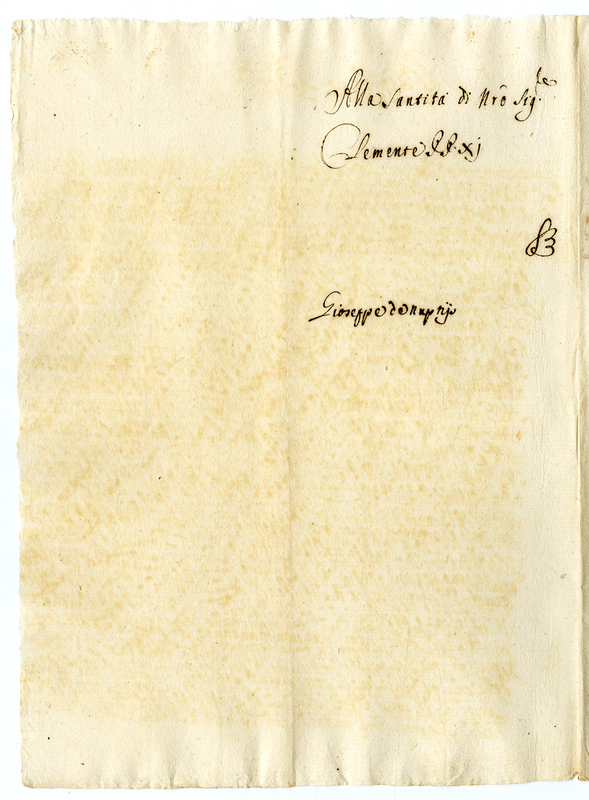 Alla Santità di Nrõ Sig.re
Clemente PP. XI
Gioseppe de Nuptijs